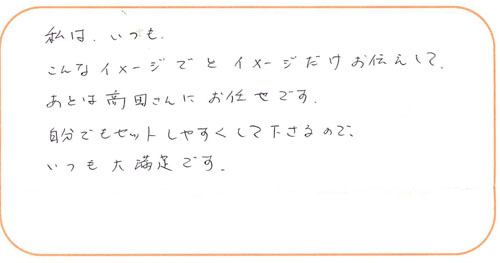 私は、いつも、
こんなイメージでとイメージだけお伝えして、
あとは高田さんにお任せです。
自分でもセットしやすくして下さるので、
いつも大満足です。